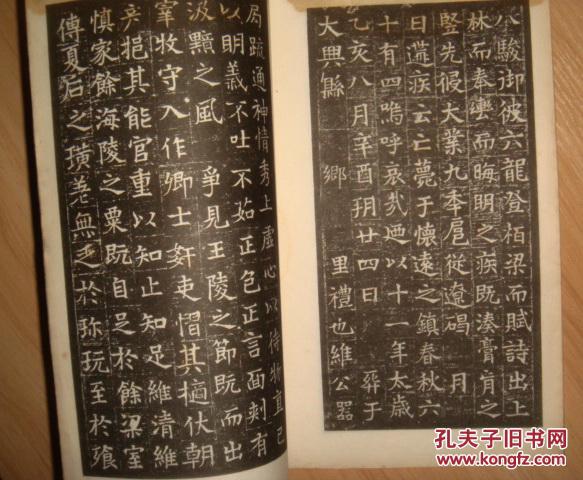 八駿御彼六龍登栢梁而賦詩出上
林而奉轡而晦明之疾既湊膏肓之
豎先侵大業九秊扈從遼碣 月
日遘疾云亡薨于懷遠之鎮春秋六
十有四嗚呼哀哉迺以十一年太歲
乙亥八月辛酉朔廿四日 葬于
大興縣 鄉 里禮也維公器
局疏通神情秀上虛心以待物直己
以明義不吐不茹正色正言面刺有
汲黯之風 爭見王陵之節既而出
宰牧守入作卿士姦吏慴其擿伏朝
廷挹其能官重以知止知足維清維
慎家餘海陵之粟既自足於餘梁室
傳夏后之璜差無乏於珎玩至於飡
孔夫子旧书网
www.kongfz.com